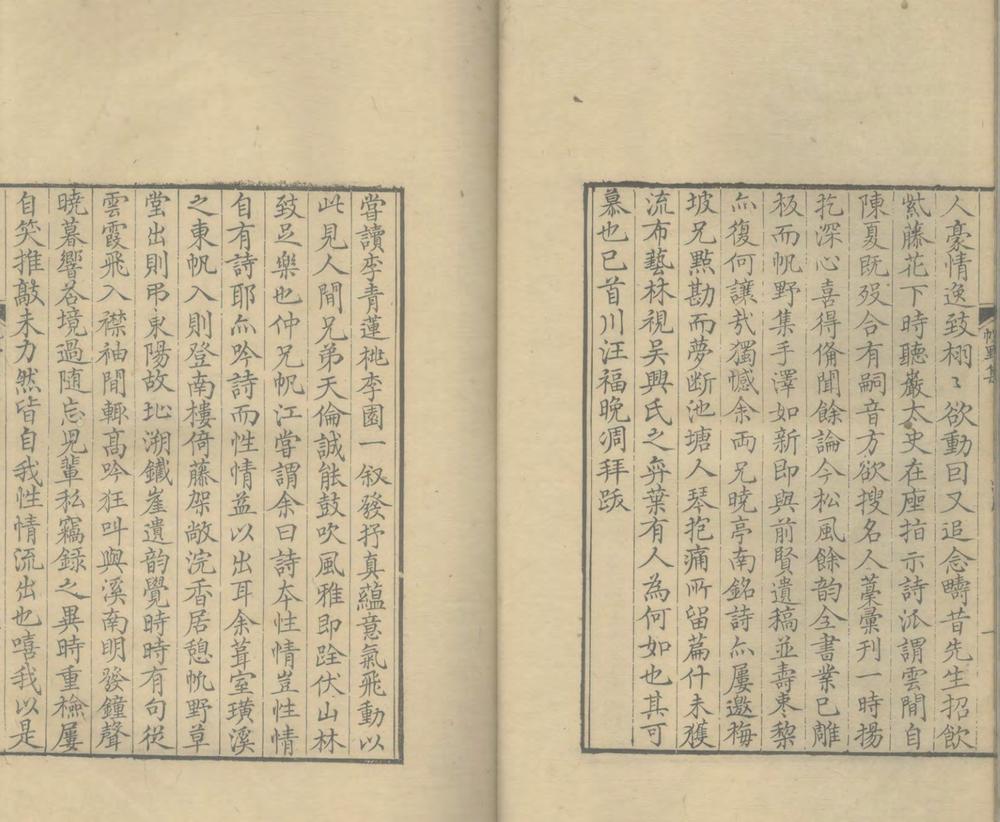 人豪情逸致栩〻欲動回又追念疇昔先生招飲
紫藤花下時聽巖太史在座拍示詩派謂雲間自
陳夏既歿合有嗣音方欲搜名人藁彙刊一時揚
扢深心喜得俻聞餘論今松風餘韵全書業已雕
板而帆野集手澤如新即與前賢遺稿並壽東棃
亦復何讓㢤獨憾余两兄曉亭南銘詩亦屢邀梅
坡兄㸃勘而夢断池塘人琴抱痛所留篇什未獲
流布藝林視吴興氏之弈葉有人為何如也其可
慕也已首川汪福晚凋拜跋
嘗讀李青蓮桃李園一叙發抒真藴意氣飛動以
此見人間兄弟天倫誠能鼓吹風雅即跧伏山林
致足樂也仲兄帆江嘗謂余曰詩本性情豈性情
自有詩耶亦吟詩而性情益以出耳余葺室璜溪
之東帆入則登南樓倚藤架敞浣香居憩帆野草
堂出則弔東陽故址溯鐵崖遺韵覺時時有句從
雲霞飛入襟袖間輙高吟狂叫與溪南明發鐘聲
曉暮響荅境過隨忘児輩私竊録之異時重檢屢
自笑推敲未力然皆自我性情流出也嘻我以是
帆野集